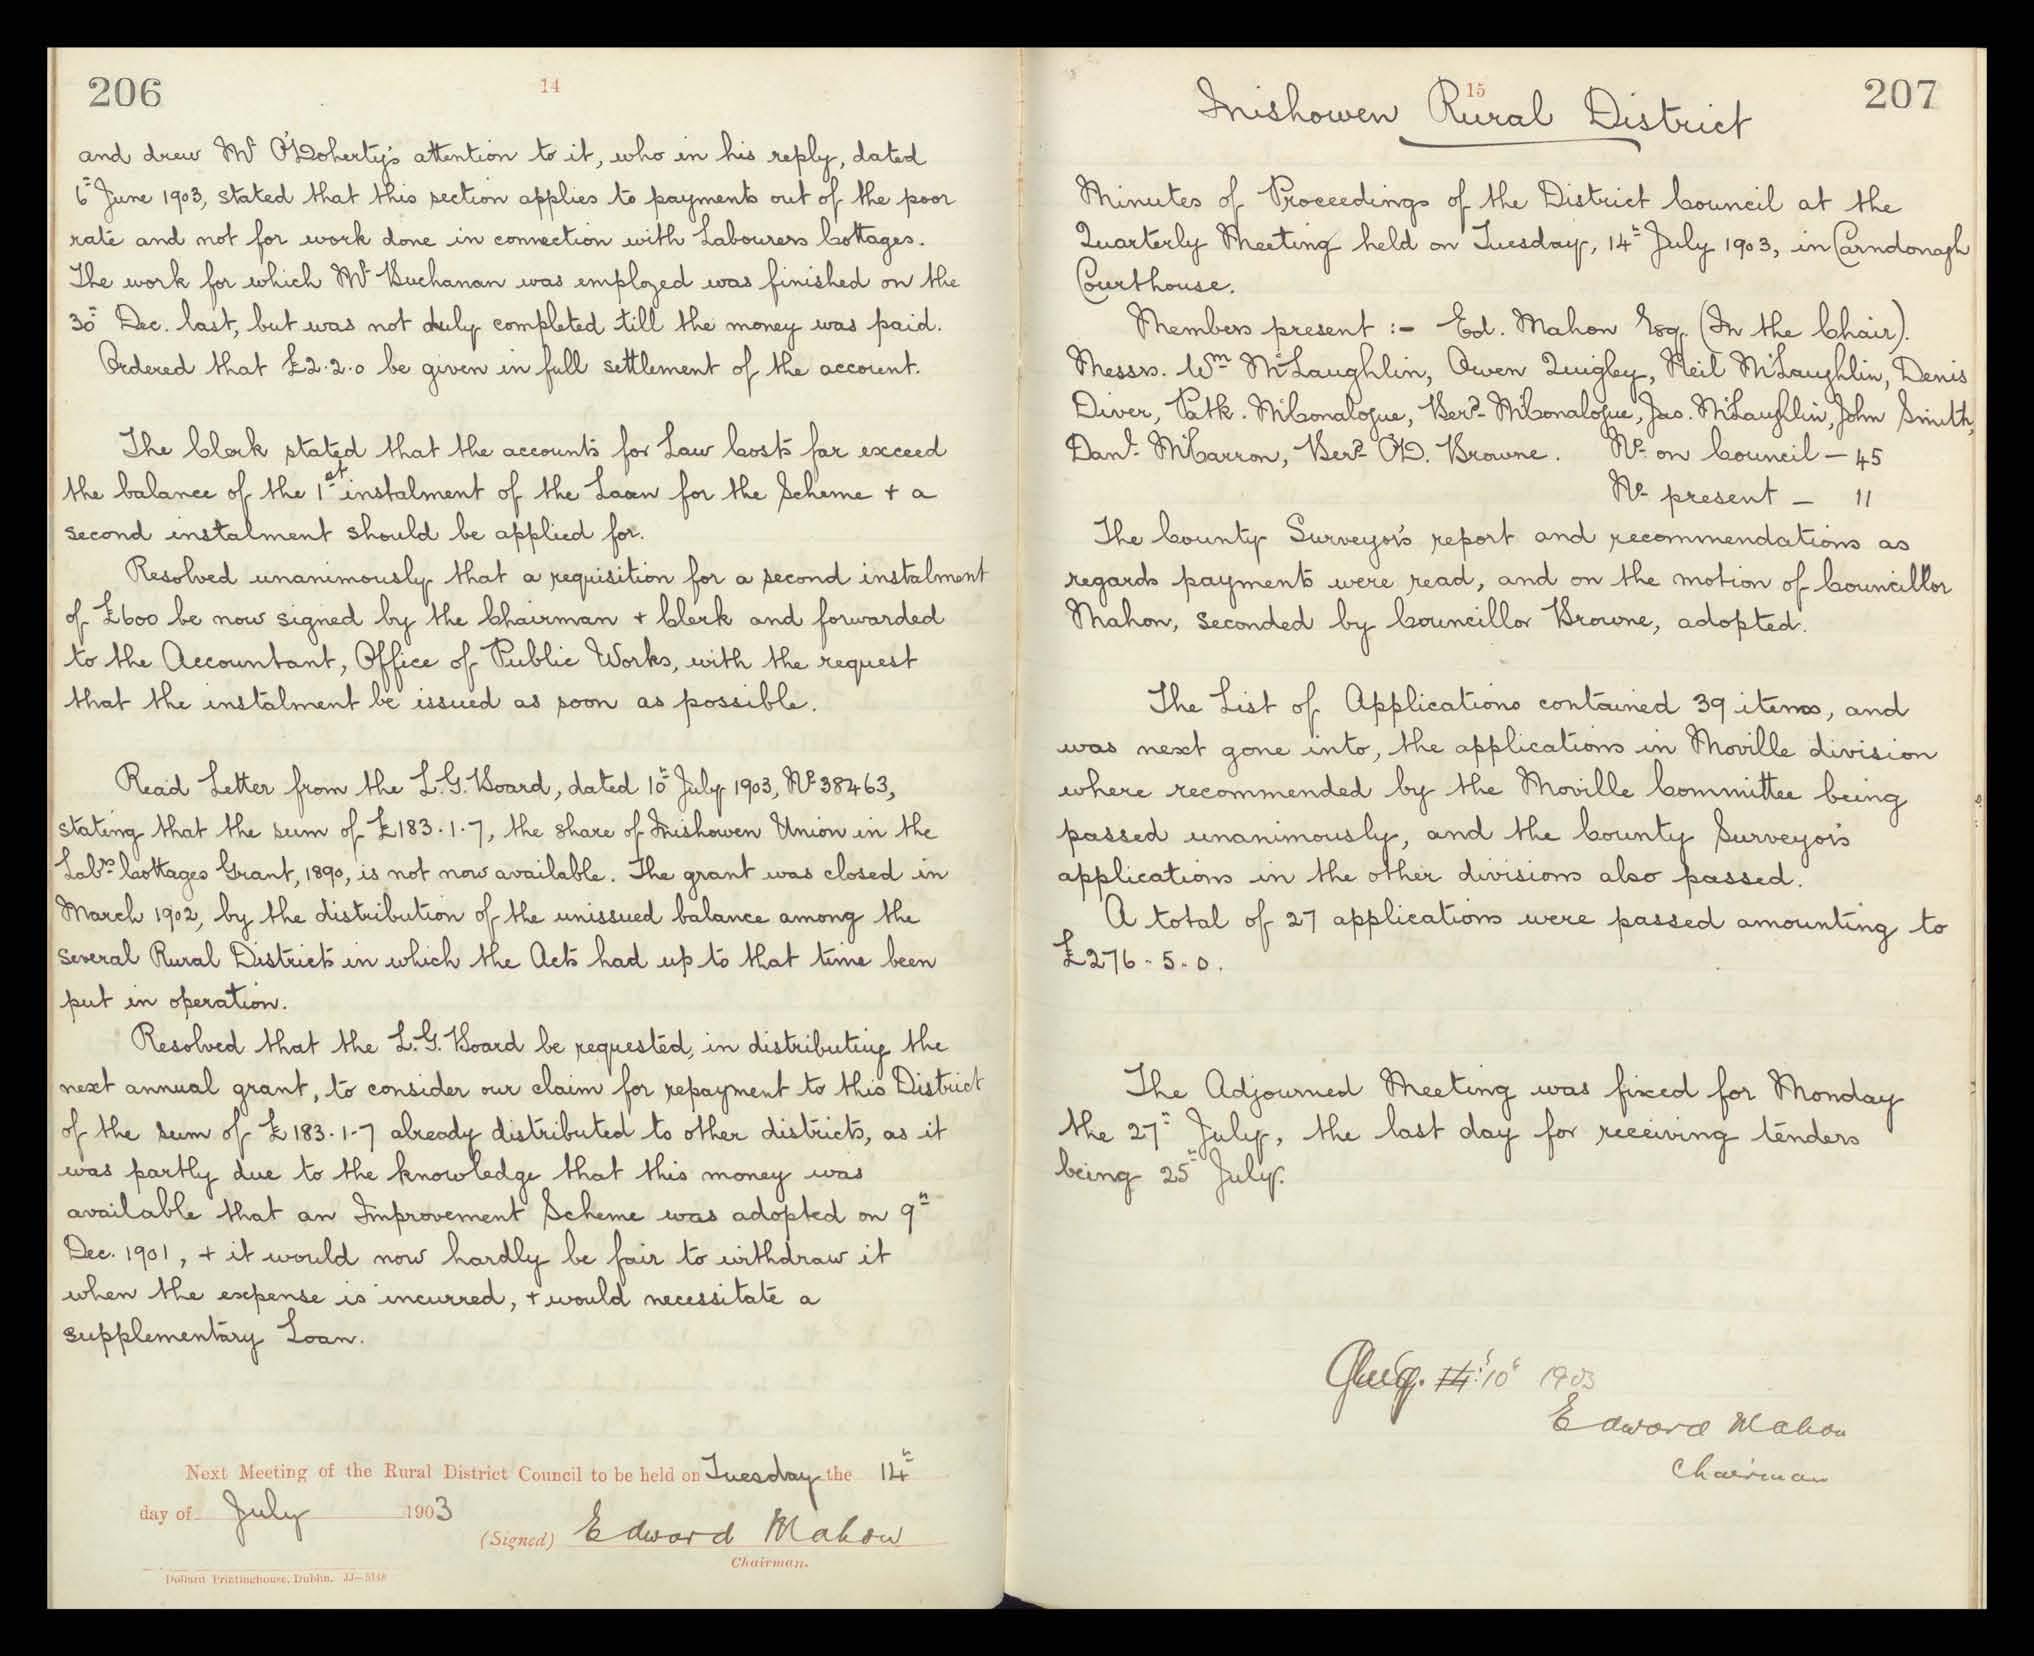 206
14
and drew Mr O'Doherty's attention to it, who in his reply, dated
6th June 1903, stated that this section applies to payments out of the poor
rate and not for work done in connection with Labourers Cottages.
The work for which Mr Buchanan was employed was finished on the
30th Dec. last, but was not duly completed till the money was paid.
Ordered that £2.2.0 be given in full settlement of the account.
The Clerk stated that the accounts for Law Costs far exceed
the balance of the 1st instalment of the Loan for the Scheme + a
second instalment should be applied for.
Resolved unanimously that a requisition for a second instalment
of £600 be now signed by the Chairman + Clerk and forwarded
to the Accountant, Office of Public Works, with the request
that the instalment be issued as soon as possible.
Read Letter from the L.G. Board, dated 10th July 1903, No 38463,
stating that the sum of £183.1.7, the share of Inishowen Union in the
Labrs Cottages Grant, 1890, is not now available. The grant was closed in
March 1902, by the distribution of the unissued balance among the
several Rural Districts in which the Acts had up to that time been
put in operation.
Resolved that the L.G. Board be requested, in distributing the
next annual grant, to consider our claim for repayment to this District
of the sum of £183.1-7 already distributed to other districts, as it
was partly due to the knowledge that this money was
available that an Improvement Scheme was adopted on 9th
Dec. 1901, + it would now hardly be fair to withdraw it
when the expense is incurred, + would necessitate a
supplementary Loan.
Next Meeting of the Rural District Council to be held on Tuesday the 14th
day of July 1903
(Signed) Edward Mahon
Chairman.
Dollard Printinghouse, Dublin. JJ—5148
15
207
Inishowen Rural District
Minutes of Proceedings of the District Council at the
Quarterly Meeting held on Tuesday, 14th July 1903, in Carndonagh
Courthouse.
Members present :- Ed. Mahon Esq. (In the Chair).
Messrs. Wm McLaughlin, Owen Quigley, Neil McLaughlin, Denis
Diver, Patk. McConalogue, Berd McConalogue, Jas. McLaughlin, John Smith,
Danl McCarron, Berd O'D. Browne. No on Council — 45
No present — 11
The County Surveyor's report and recommendations as
regards payments were read, and on the motion of Councillor
Mahon, seconded by Councillor Browne, adopted.
The List of Applications contained 39 items, and
was next gone into, the applications in Moville division
where recommended by the Moville Committee being
passed unanimously, and the County Surveyor's
applications in the other divisions also passed.
A total of 27 applications were passed amounting to
£276-5-0.
The Adjourned Meeting was fixed for Monday
the 27th July, the last day for receiving tenders
being 25th July.
Aug. 10th 1903
Edward Mahon
Chairman